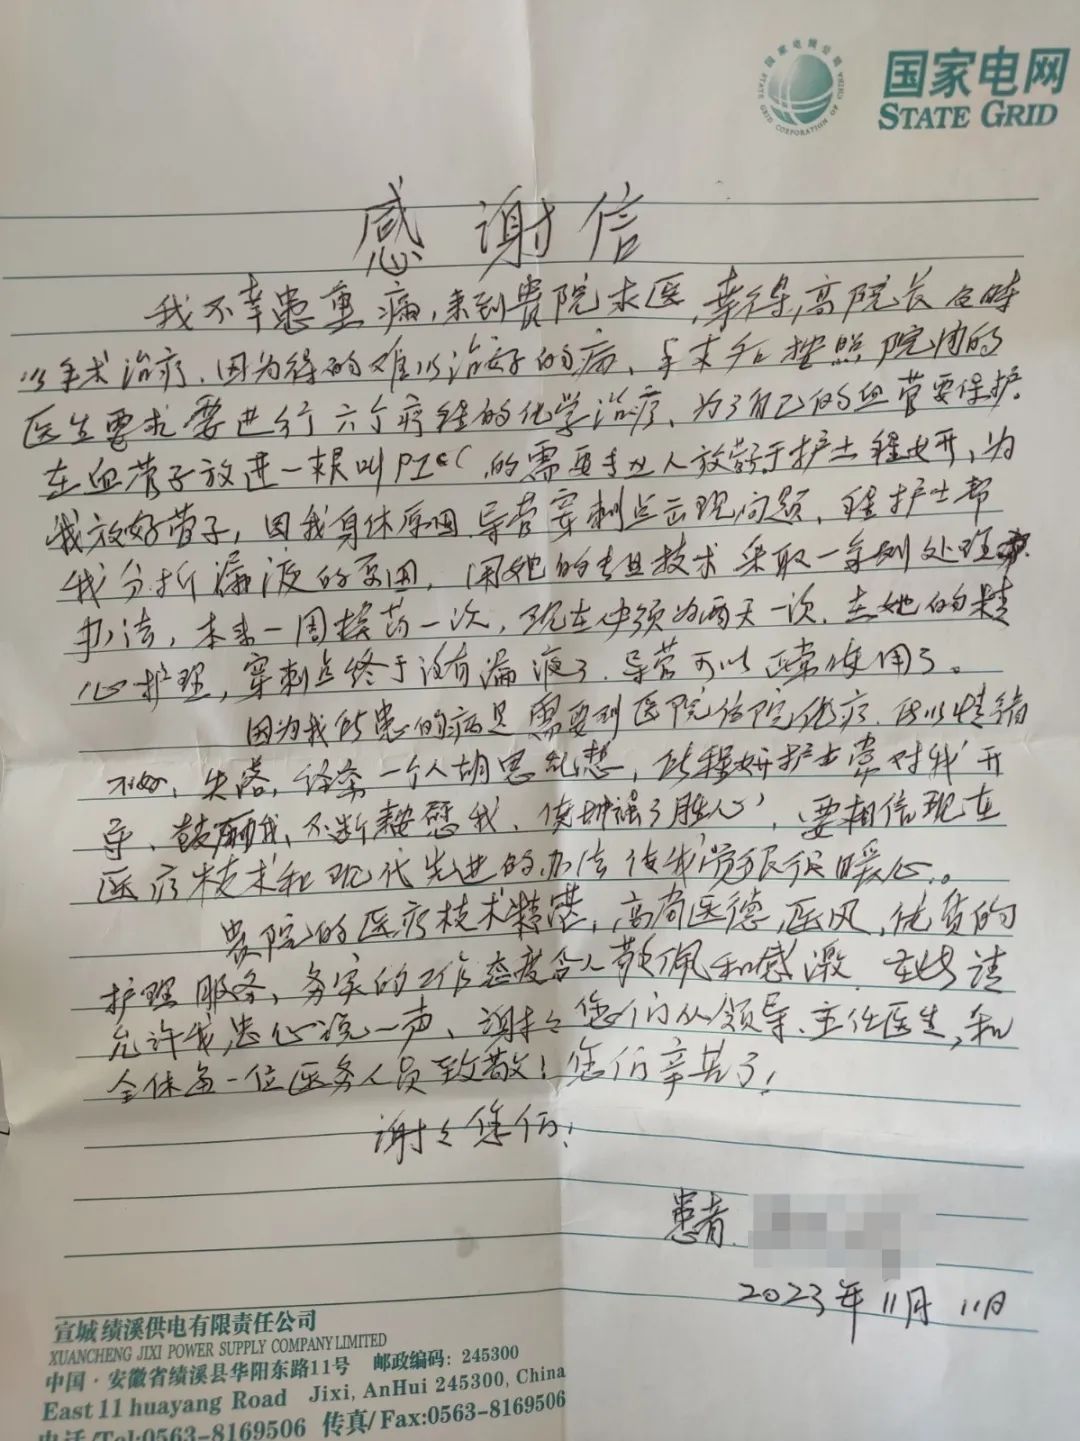 国家电网
STATE GRID
国家电网公司
STATE GRID CORPORATION OF CHINA
感谢信
我不幸患重病，来到贵院求医，幸得，高院长及时
以手术治疗、因为得的难以治好的病、手术后按照院内的
医生要求要进行六个疗程的化学治疗、为了自己的血管要保护
在血管子放进一根叫PICC的需要专业人放管子护士程妍，为
我放好管子，因我身体原因、导管穿刺点出现问题、程护士帮
我分析漏液的原因，用她的专业技术采取一系列处理
办法，本来一周换药一次，现在必须为两天一次、在她的精
心护理，穿刺点终于没有漏液了、导管可以正常使用了。
因为我所患的病是需要到医院住院化疗、所以情绪
不好、失落、经常一个人胡思乱想，程妍护士常对我开
导、鼓励我、不断安慰我、使增强了信心，要相信现在
医疗技术和现代先进的办法使我觉得很暖心。
贵院的医疗技术精湛，高尚医德，医风，优质的
护理服务、务实的工作态度令人敬佩和感激、在此请
允许我，忠心说一声、谢谢您们从领导、主任医生，和
全体每一位医务人员致敬！您们辛苦了！
谢谢您们！
患者
2023年11月11日
宣城绩溪供电有限责任公司
XUANCHENG JIXI POWER SUPPLY COMPANY LIMITED
中国·安徽省绩溪县华阳东路11号 邮政编码：245300
East 11 huayang Road Jixi, AnHui 245300, China
电话/Tel:0563-8169506 传真/Fax:0563-8169506